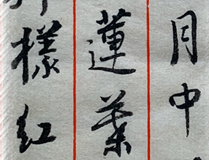 月中
蓮葉
樣紅